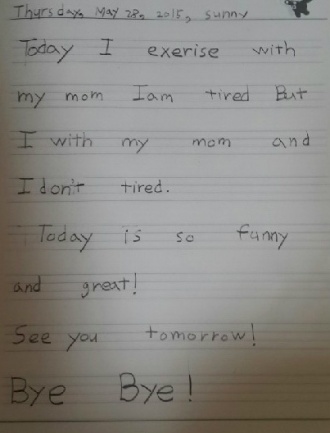 Thursday, May 28, 2015, sunny
Today I exerise with
my mom Iam tired But
I with my mom and
I don't tired.
Today is so funny
and great!
See you tomorrow!
Bye Bye!